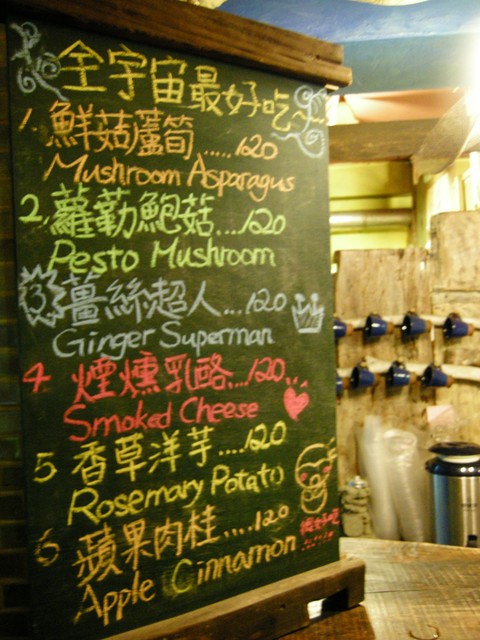 全宇宙最好吃~...
1. 鮮菇蘆筍.....120
Mushroom Asparagus
2. 蘿勒鮑菇...120
Pesto Mushroom
3 薑絲超人...120
Ginger Superman
4 煙燻乳酪...120
Smoked Cheese
5 香草洋芋....120
Rosemary Potato
6 蘋果肉桂....120
Apple Cinnamon